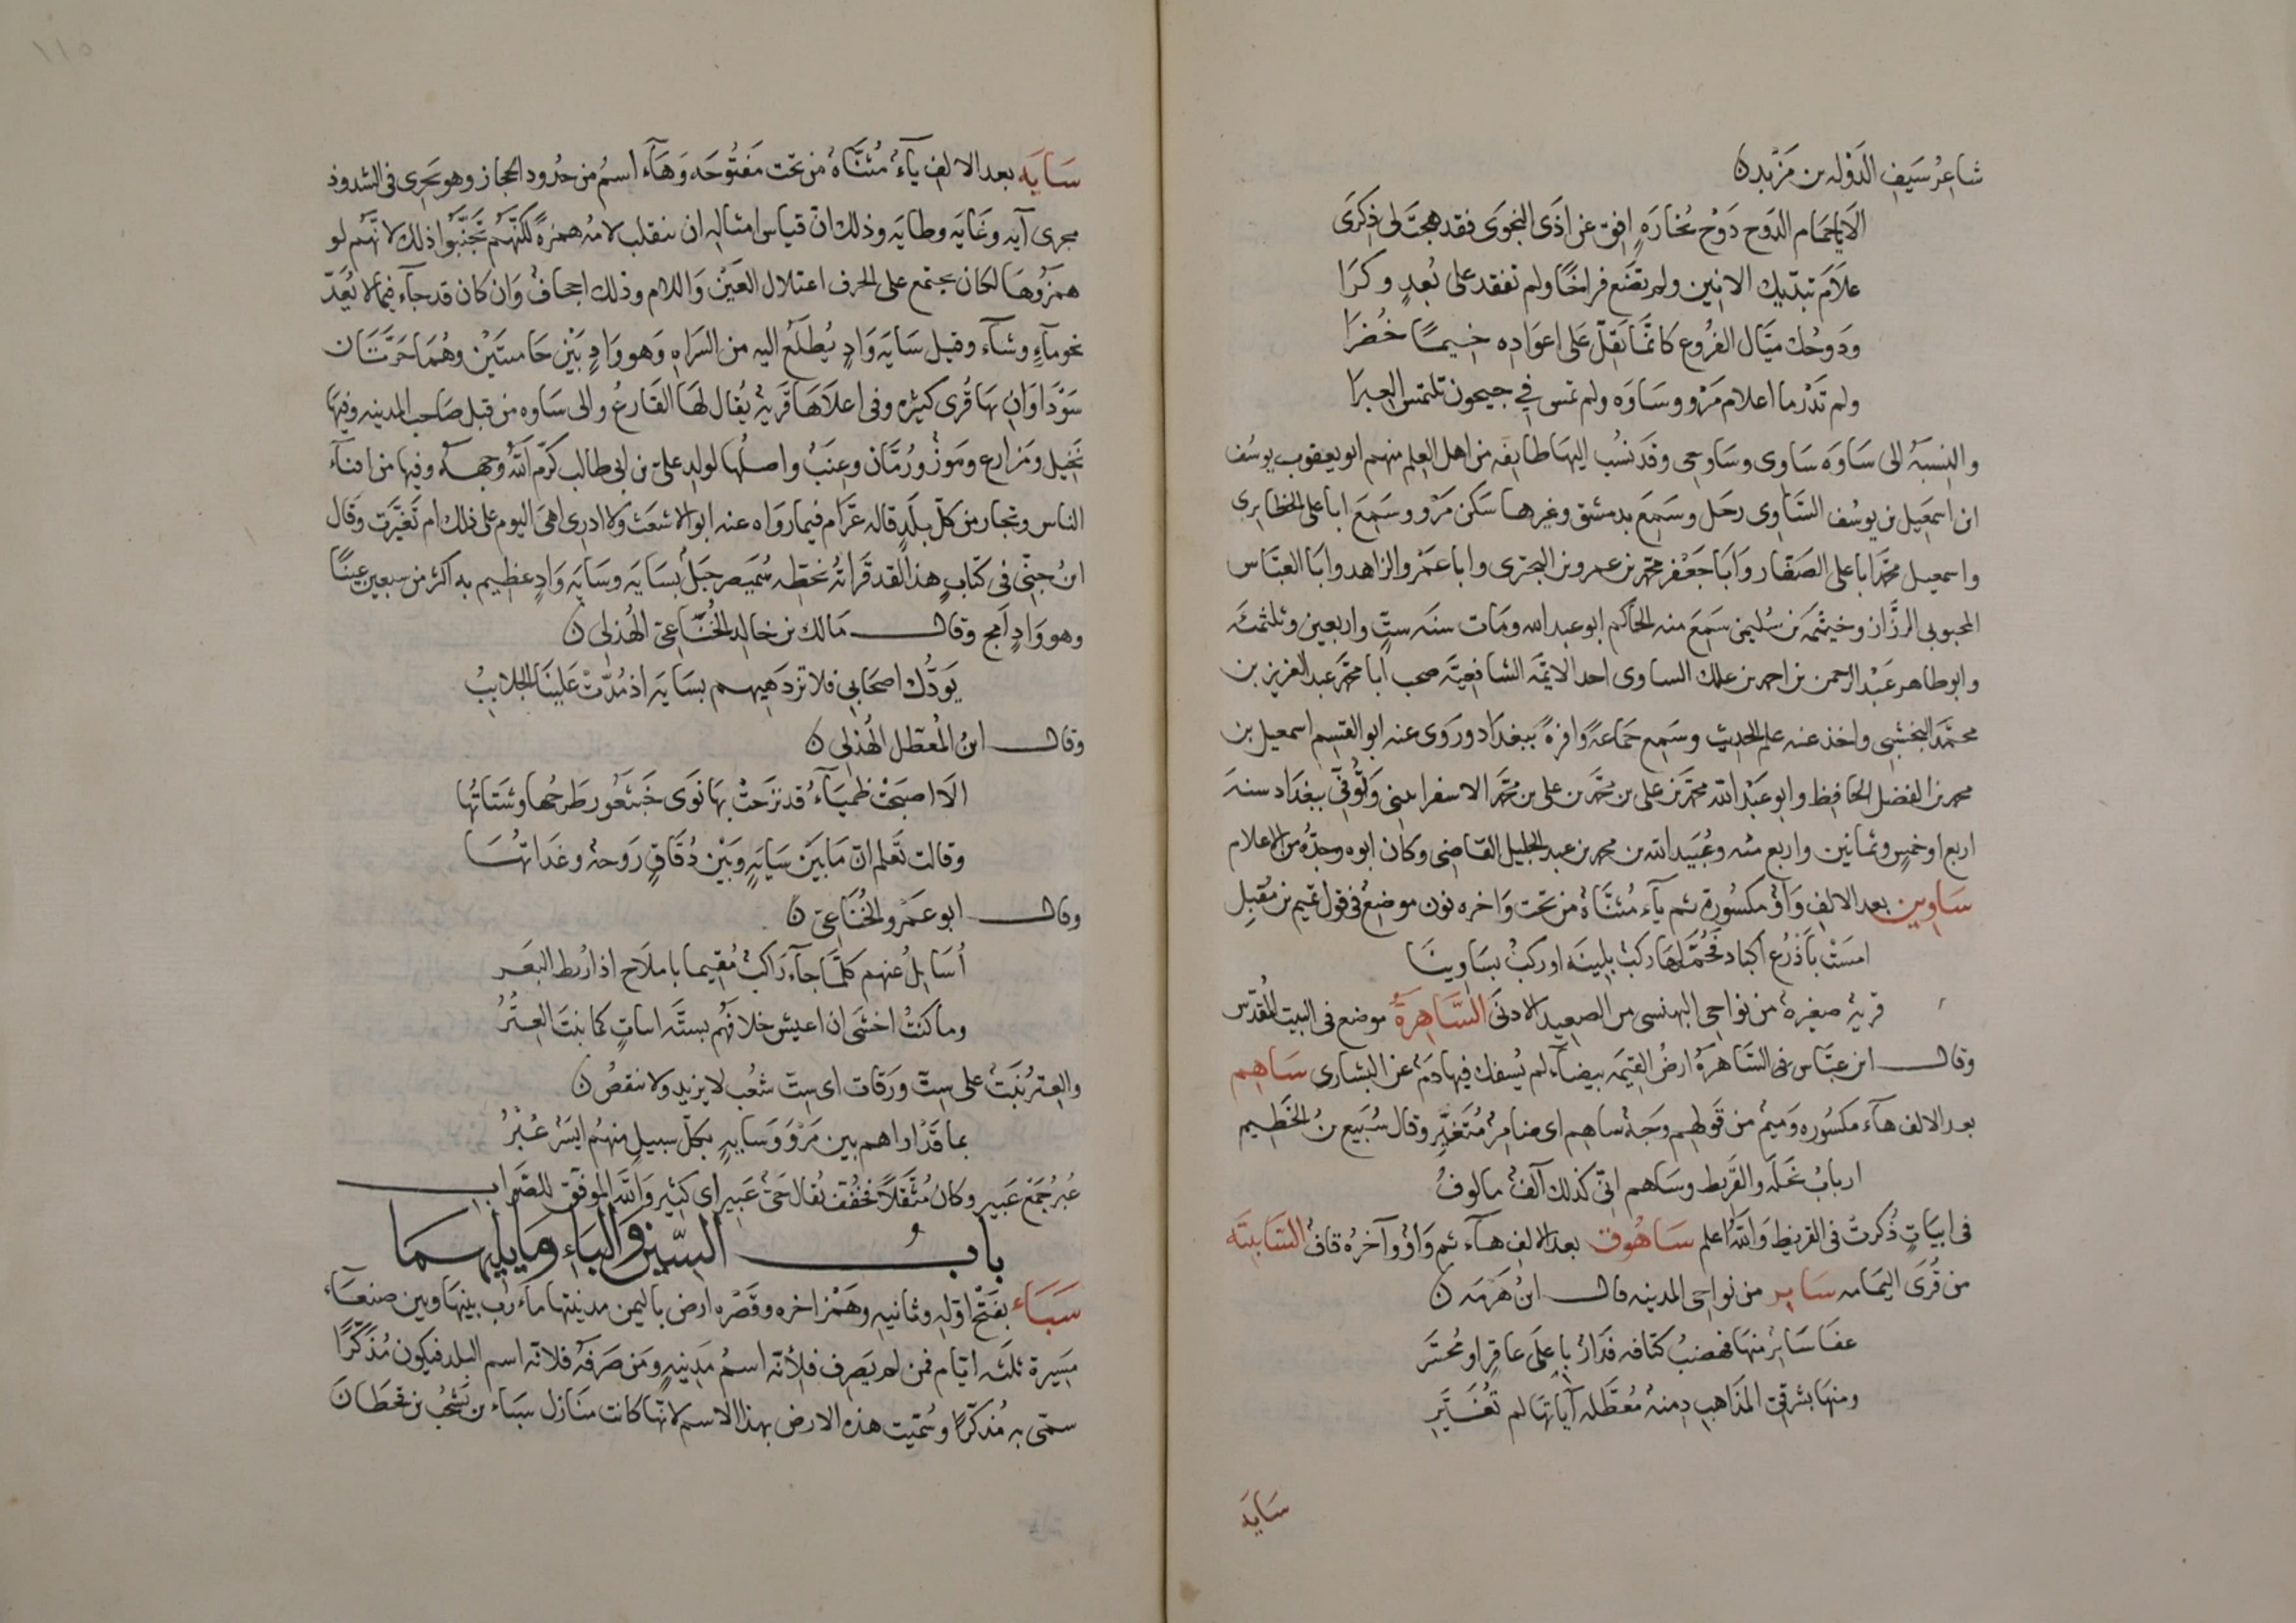 شاعِرُ سَيفِ الدَوْله بن مَزْيَد ن
الَا ياحمَام الدَوح دَوْح بُخارَهِ افِق عن اذَى النجوَى فقد هجتَ لى ذِكرَى
علَامَ تبدّيك الانين ولم تضَع فراخًا ولم تفقد على بُعدٍ وكرَا
ودَوحُك ميَّال الفُروع كانّما يَقلّ عَلى اعوَادِه خيمًا خُضرَا
ولم تَدْرما اعلام مَرْو وسَاوَه ولم تمس فى جيحون تلتمس العبرَا
والنِسبَة الى سَاوَه سَاوى وسَاوحى وقد نسُب اليهَا طايفَه من اهل العِلم منهم ابو يعقوب يوسُف
ابن اسمَعيل بن يوسُف السَّاوى رحَل وسَمِعَ بدمشق وغيرها سَكن مَرْو وسَمِعَ ابا على الحظايرى
واسمعيل محمّد ابا على الصَفّار وَابَا جَعْفر محمّد بن عمرو بن البحترى وابا عَمْرو الزاهد وابَا العبَّاس
المحبوبى الرزَّاز وخيثمَه بن سُليمن سَمِعَ منه الحَاكم ابو عبد الله ومَات سنَه ستٍّ واربعين وثلثمئَه
وابو طاهر عَبْد الرحمن بن احمد بن علك الساوى احد الائِمَه الشافعيَّه صحب ابا محمّد عبد العزيز بن
محمَّد النخشبى واخذ عنه علم الحديث وسَمِع جَماعَةً وافرةً ببغدَاد ورَوَى عنه ابو القسِم اسمعيل بن
محمد بن الفضل الحَافِظ وابو عَبْد الله محمّد بن على بن محمّد بن على بن محمَّد الاسفراينى وَتُوُفّى ببغدَاد سنَه
اربع او خمسٍ وثمانين واربع مئه وعُبَيد الله بن محمد بن عبد الجليل القَاضى وكان ابوه وجدُّه من الاعلام
سَاوين بعد الالفِ وَاوٌ مكسُورة ثم يآء مُثنَّاةٌ من تحت وَاخره نون موضِعٌ فى قول تميم بن مُقبِل
امسَتْ باَذرُع اكباد فحُمَّ لهَا ركبٌ بلينَه او ركبٌ بسَاوينَا
قريَة صغيرةٌ من نواحى البهنسى من الصعِيد الادنىَ السَّاهِرَةُ موضع فى البيت المُقدّس
وقال ابن عبَّاس فى السَّاهرَةُ ارضُ القيمَه بيضآء لم يُسفك فيها دَمٌ عن البشارى سَاهِم
بعد الالف هآء مكسُوره ومَيمٌ من قَولهم وَجهٌ ساهِم اى ضَامِرٌ مُتَغيِّر وقال سُبَيع بنُ الخَطِيم
اربابُ نَخلَه والقَريط وسَاهم انّى كذلك آلفٌ مالوفُ
فى ابيَاتٍ ذُكرتْ فى القريط وَاللهُ اعلم سَاهُوق بعد الالِف هآء ثم وَاوٌ وآخرُه قاف السَّايبَة
من قُرَى اليمَامه سَاير من نواحى المدينه قال ابنُ هَرْمَه ن
عفَا سَائرٌ منهَا فهضبُ كتَافه فدَارٌ بِاعلَى عاقِرٍ او محُسَّر
ومنهَا بشرقىّ المذَاهِب دِمنهٌ مُعَطَّله آيَاتها لم تُغَيَّرِ
سَايَه
سَايَه بعد الالفِ يآءٌ مُثنَّاةٌ من تحت مَفتُوحَه وَهَآء اسمٌ من حُدُود الحجاز وهو يَجرِى فى الشذوذ
مجرى آيَه وغَايَه وطايَه وذلك انّ قياس امثالِه ان تنقلب لامُه همزةً لكنّهم تجنّبُوا ذلك لانّهم لو
همزُوهَا لكان يجتمع على الحرف اعتلال العَيْن وَاللام وذلك اجحافٌ وَان كان قد جآء فيما لا يُعَدّ
نحو مآءٍ وشآء وقيل سَايَه وَادٍ يُطلَعُ اليه من السَرَاه وَهو وَادٍ بَيْن حَامتَيْن وهُمَا حَرَّتَان
سَوْدَاوَانِ بهَا قُرى كثيره وفى اعلَاهَا قَريةٌ يُقال لهَا الفَارعُ والى ساوه من قبَل صَاحب المدينه وفيها
نَخيل ومَزارع ومَوزٌ ورُمَّان وعنبٌ واصلُها لولد على بن ابى طالب كرّم اللهُ وجهه وفيها من افنآء
الناس وتجار من كلّ بلَدٍ قاله عَرَّام فيما رَوَاه عنه ابو الاشعث ولا ادرى اهىَ اليوم على ذلك ام تَغيَّرت وقال
ابنُ جنّى فى كتابٍ هذا لقد قَراتُه بخطّه شَمَيصر جَبلٌ بسَايَه وسَايَه وَادٍ عظِيم به اكثر من سبعين عينًا
وهو وَادٍ امج وقال مَالك بن خالِد الخُنَاعىّ الهُذلى ن
يَودُّك اصحَابى فلا تزدَهيهم بسَايَه اذ مُدَّتْ عَلينَا الجلابِبُ
وقال ابنُ المُعطّل الهُذلى ن
الَا اصبَحتْ ظميَآءُ قد نزحَتْ بهَا نوَى خَيتَعُور طَرحُها وشتاتُها
وقالت تعَلم انّ مَا بَيْن سَايَهٍ وَبَيْن دُقَاقٍ رَوحهٌ وغدَاتهُا
وقال ابو عَمْرو الخُنَاعِىّ ن
اُسَايِلُ عنهم كلّمَا جآء رَاكبٌ مُقيما باملَاح اذا رُبط اليَعْرُ
وما كنتُ اخشَى ان اعيش خلافهُم بستَّه اباتٍ كما نبَتَ العِتْرُ
والعِتر نبَتٌ على ستّ ورَقات اى ستّ شعُب لا يزيد ولا ينقصُ ن
بما قَدْ اراهم بين مَرٍّ وَسَايهٍ بكلّ سبيلٍ منهُم اَيسَرٌ عُبْرُ
عُبر جُمَعُ عَبير وكان مُثقّلًا فخفّف يُقال حَىٌّ عَبير اى كثير وَالله الموفّق للصَّوابِ
بابُ السّين وَالباءِ وَمَا يليهما
سَبَاء بفَتْح اوّلهِ وثانيهِ وهَمْز اخره وقَصْره ارض باليمن مدينتها مآءرب بينهَا وبين صنعَآء
مَسِيرة ثلثَه ايّام فمن لم يَصرِف فلأنّه اسمُ مَدِينهٍ ومَن صَرفهُ فلانّه اسم البلد فيكون مُذكّرًا
سمّى به مُذكّرًا وسُمّيت هذه الارض بهذا الاسم لانّها كانت مَنازل سَباء بن يَشجُب بن قحطَانَ
١١٥